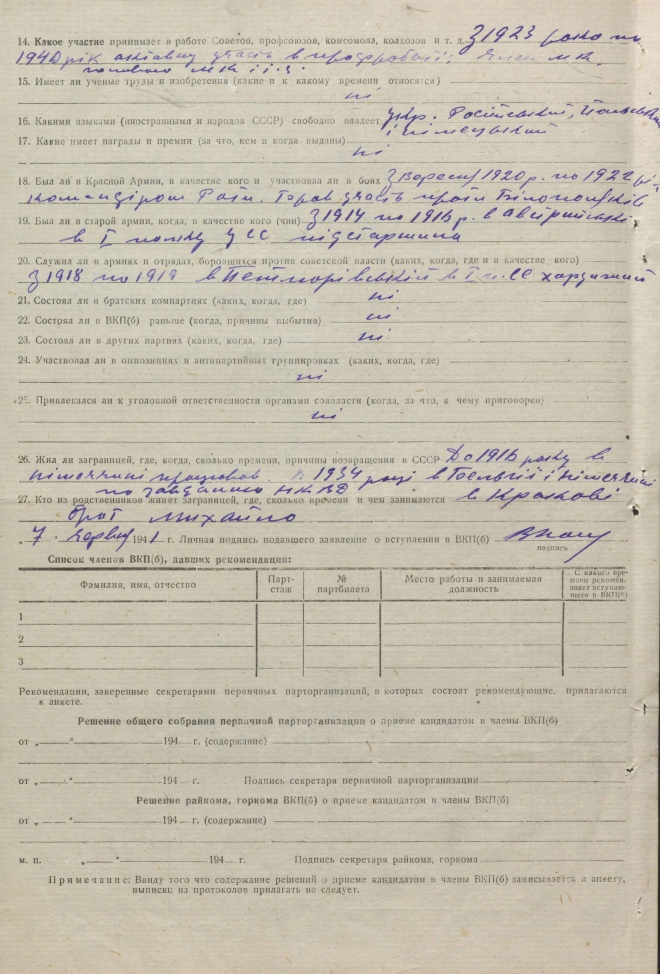 14. Какое участие принимает в работе Советов, профсоюзов, комсомола, колхозов и т. д. З 1923 року по
1940 рік активну участь в профроботі: член МК,
голова МК і т. і.
15. Имеет ли ученые труды и изобретения (какие и к какому времени относятся)
ні
16. Какими языками (иностранными и народов СССР) свободно владеет Укр. Російський, Польський
і німецький
17. Какие имеет награды и премии (за что, кем и когда выданы)
ні
18. Был ли в Красной Армии, в качестве кого и участвовал ли в боях З Вересня 1920 р. по 1922 рі-
командіром Роти. Брав участь проти
19. Был ли в старой армии, когда, в качестве кого (чин) З 1914 по 1916 р. в австрійські
в І полку УСС підстаршина
20. Служил ли в армиях и отрядах, боровшихся против советской власти (каких, когда, где и в качестве кого)
З 1918 по 1919 в Петлюрівській в І п. СС
21. Состоял ли в братских компартиях (каких, когда, где) ні
22. Состоял ли в ВКП(б) раньше (когда, причины выбытия) ні
23. Состоял ли в других партиях (каких, когда, где) ні
24. Участвовал ли в оппозициях и антипартийных группировках (каких, когда, где)
ні
25. Привлекался ли к уголовной ответственности органами соввласти (когда, за что, к чему приговорен)
ні
26. Жил ли заграницей, где, когда, сколько времени, причины возвращения в СССР До 1916 року в
німеччині працював. В 1934 році в Бельгії і Німеччині
по завданню НКВД
27. Кто из родственников живет заграницей, где, сколько времени и чем занимаются в Кракові
брат Михайло
„7“ червня 1941 г. Личная подпись подавшего заявление о вступлении в ВКП(б)
подпись
Список членов ВКП(б), давших рекомендации:
Фамилия, имя, отчество | Парт-стаж | № партбилета | Место работы и занимаемая должность | С какого времени рекомен. знает вступающего в ВКП(б)
1
2
3
Рекомендации, заверенные секретарями первичных парторганизаций, в которых состоят рекомендующие, прилагаются
к анкете.
Решение общего собрания первичной парторганизации о приеме кандидатом в члены ВКП(б)
от „ “ 194 г. (содержание)
от „ “ 194 г. Подпись секретаря первичной парторганизации
Решение райкома, горкома ВКП(б) о приеме кандидатом в члены ВКП(б)
от „ “ 194 г. (содержание)
м. п. „ “ 194 г. Подпись секретаря райкома, горкома
Примечание: Ввиду того что содержание решений о приеме кандидатом в члены ВКП(б) записывается в анкету,
выписки из протоколов прилагать не следует.